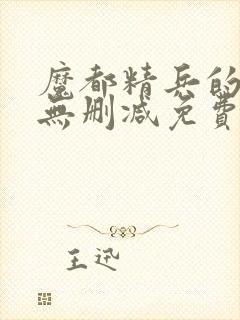 魔都精兵的
無刪减免費
王迅